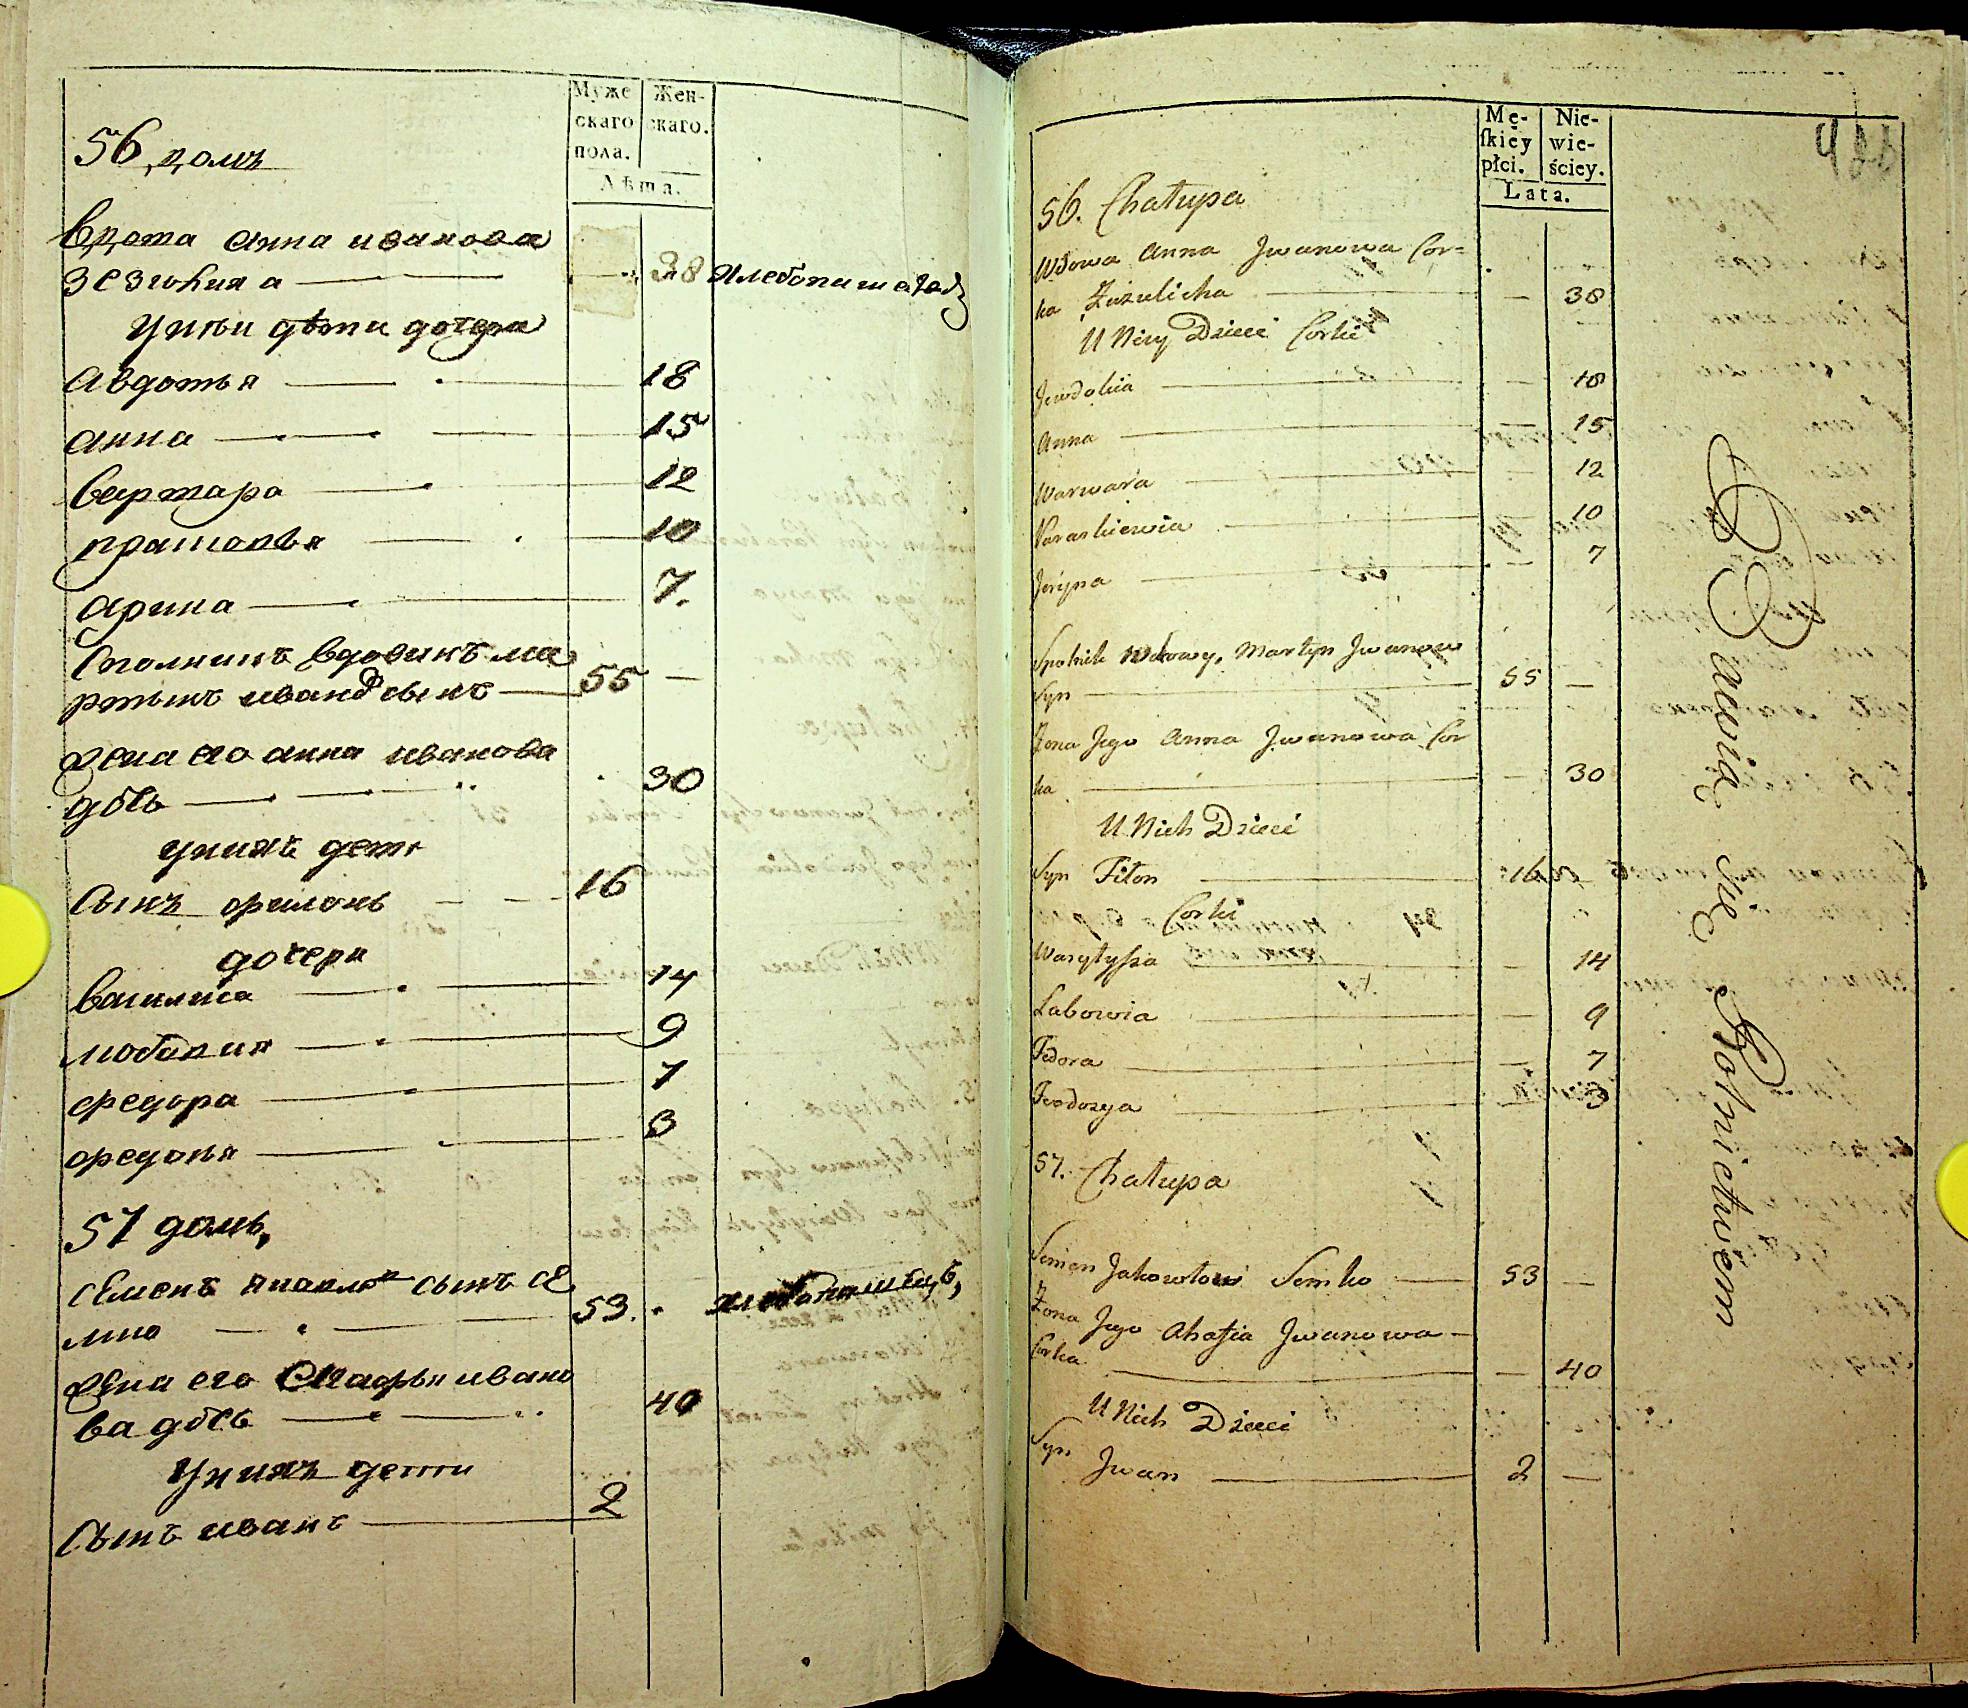 Муже
скаго
пола.
Жен-
скаго.
Лѣта.
56 домъ
вдова анна иванова
38
У нѣи дѣти дочери
авдотья 18
анна 15
варвара 12
прасковья 10
арина 7.
вдовикъ ма
ртынъ иванов сынъ 55 —
жена его анна иванова
дочь 30
у нихъ дети
Сынъ филонъ 16
дочери
василиса 14
любавия 9
федора 7
федоня 3
57 домъ,
семенъ яковлев сынъ се
мко 53.
жена его агафья ивано
ва дочь 40
у нихъ дети
Сынъ иванъ 2
Mę-
ſkiéy
płci.
Nie-
wie-
ściey.
Lata.
56. Chałupa
Wdowa Anna Jwanowa Cor=
ka Zuzulicha — 38
U Niey Dzieci Corki
Jewdokia — 18
Anna — 15
Warwara — 12
Paraskiewia — 10
Jeryna — 7
Spolnik Wdowy, Martyn Jwanow
Syn 55 —
Żona Jego Anna Jwanowa Cor
ka — 30
U Nich Dzieci
Syn Filon 16
Corki
Wasylyssa — 14
Labowia — 9
Fedora — 7
Feodozya 3
57. Chałupa
Semen Jakowlow Semko 53 —
Żona Jego Ahafia Jwanowa
Corka — 40
U Nich Dzieci
Syn
Jwan 2 —
Bawią się Rolnictwem